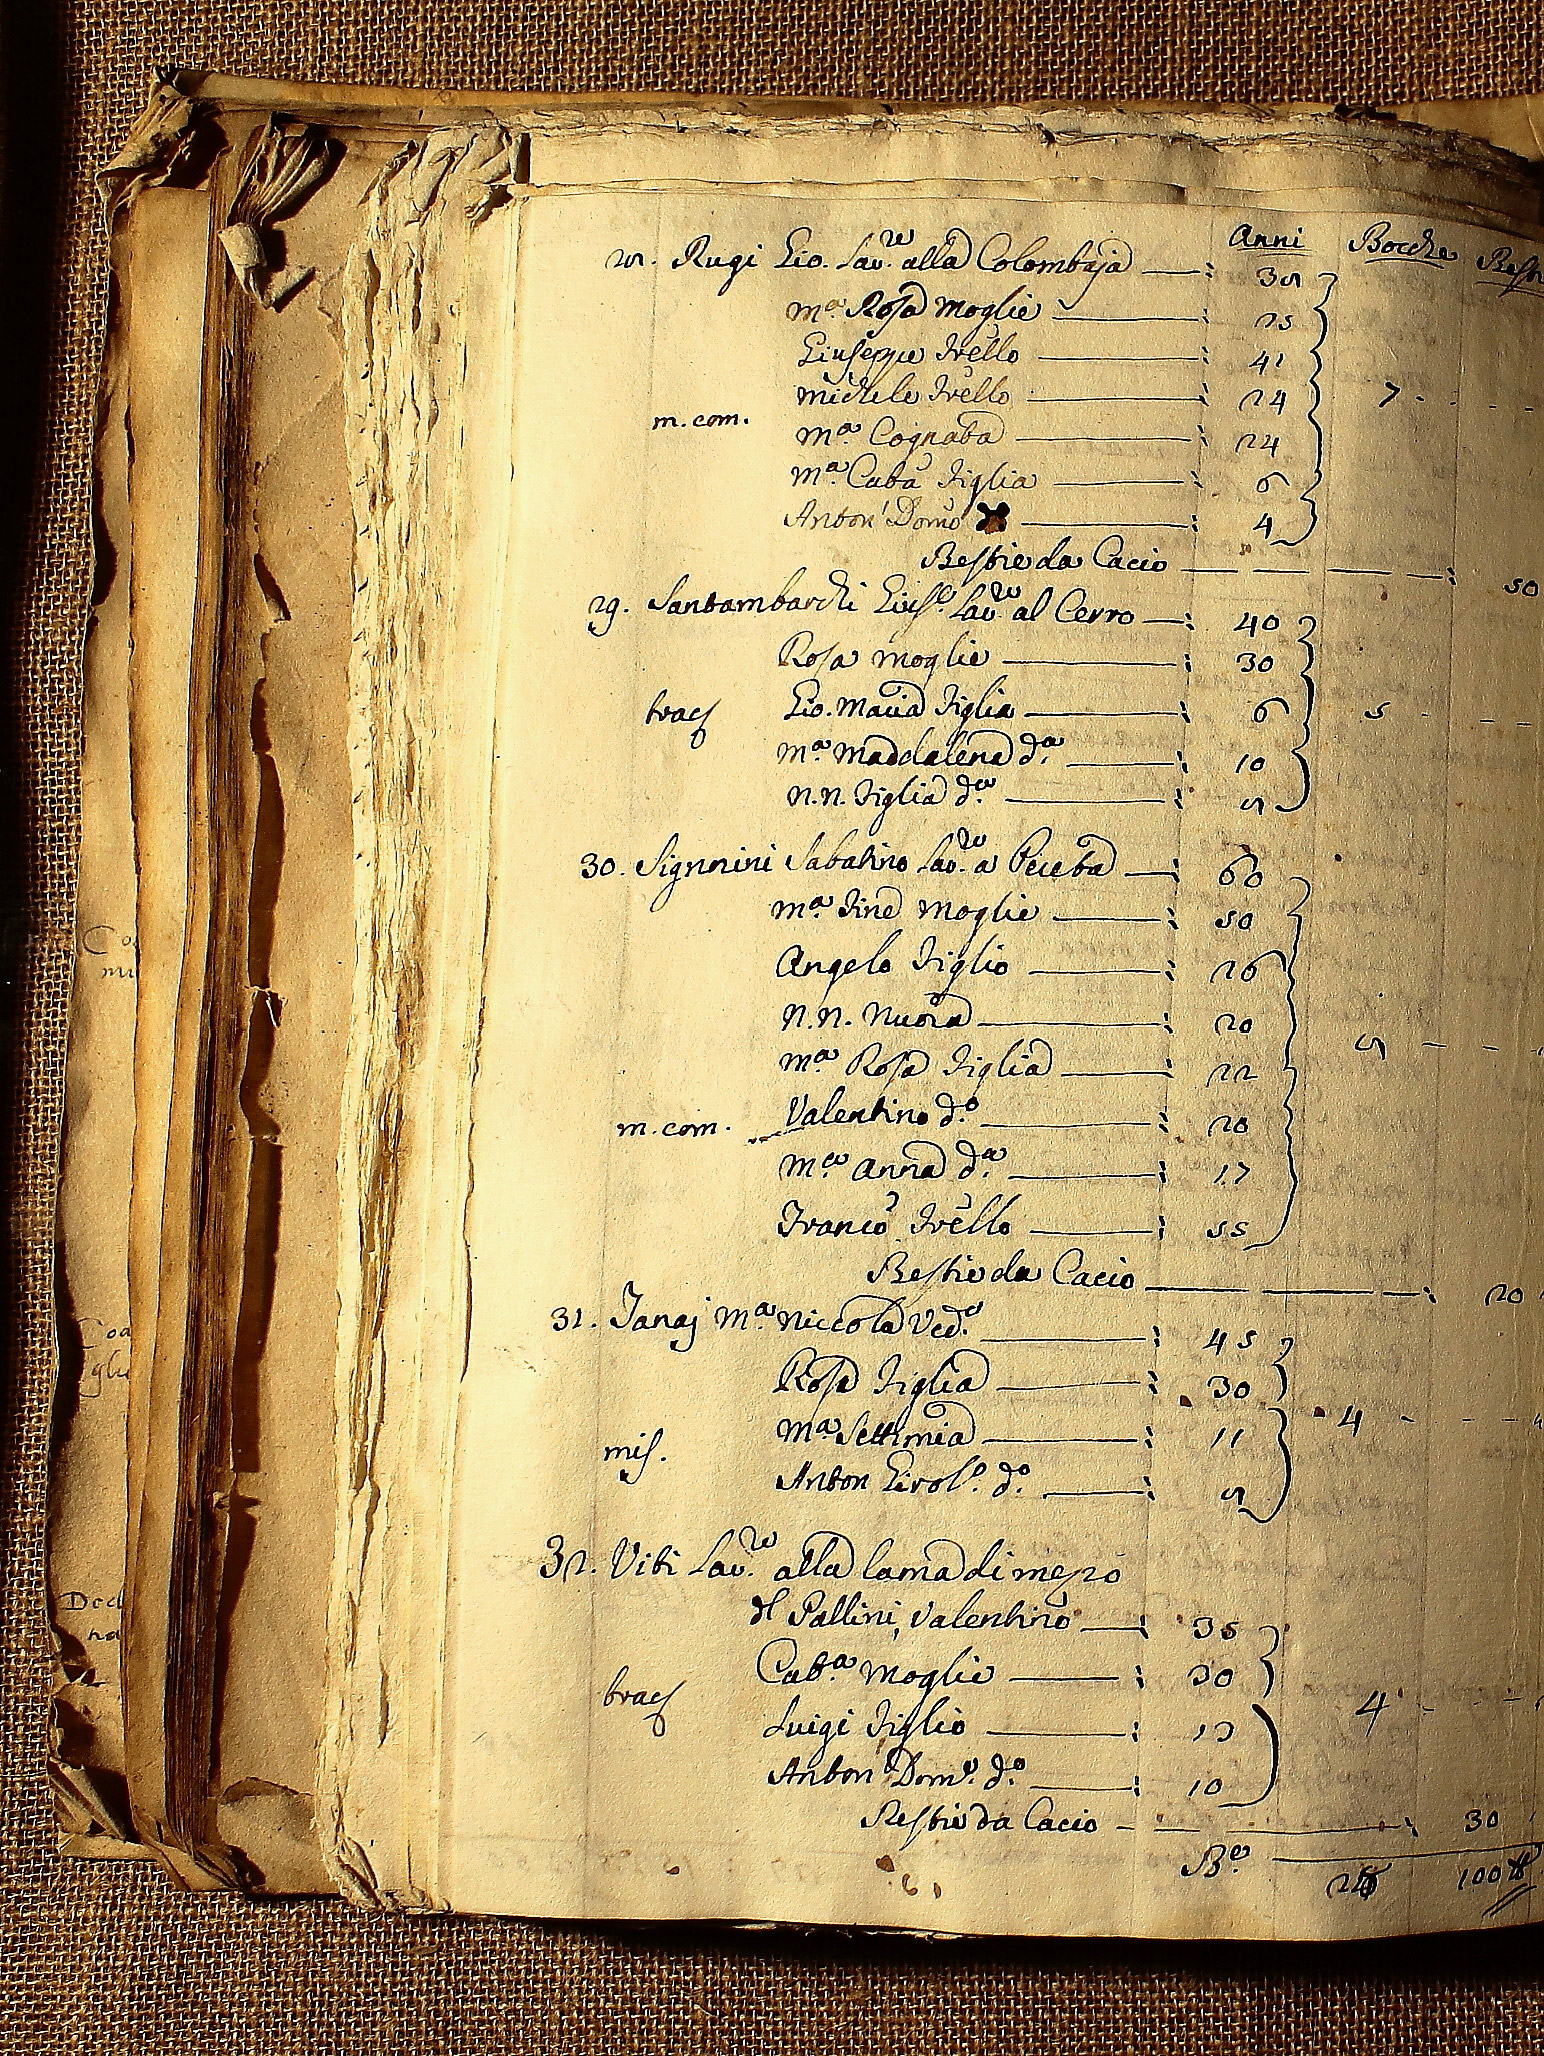 Anni Bocche
28. Rugi Gio. Lav.re alla Colombaja — : 38
M.a Rosa moglie — : 25
Giuseppe Frello — : 41
Michele Frello — : 24 7
m. com. M.a Cognata — : 24
M.a Cat.a Figlia — : 6
Anton Dom.o — : 4
Bestie da Cacio — : 50
29. Santambarchi Gius.e Lav.re al Cerro — : 40
Rosa moglie — : 30
brac Gio. Maria Figlia — : 6 5
M.a Maddalena d.a — : 10
N.N. Figlia d.a — : 8
30. Signnini Sabatino Lav.re a Peceta — : 60
M.a Fine moglie — : 50
Angelo Figlio — : 26
N.N. Nuora — : 20
M.a Rosa Figlia — : 22 8
m. com. Valentino d.o — : 20
M.a Anna d.a — : 17
Franc.o Frello — : 55
Bestie da Cacio — : 20
31. Fanaj M.a Niccola Ved.a — : 45
Rosa Figlia — : 30
M.a Settimia — : 11 4
mis. Anton d.o — : 8
32. Viti Lav.re alla lama di mezzo
del Pallini, Valentino — : 35
Cat.a moglie — : 30
brac Luigi Figlio — : 13 4
Anton Dom.o d.o — : 10
Bestie da Cacio — : 30
28 100